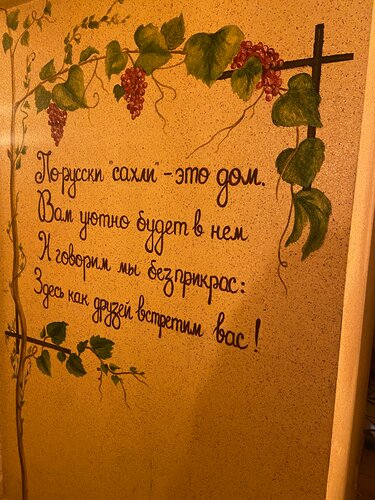 По русски "сахли" - это дом.
Вам уютно будет в нем
И говорим мы без прикрас:
Здесь как друзей встретим вас!